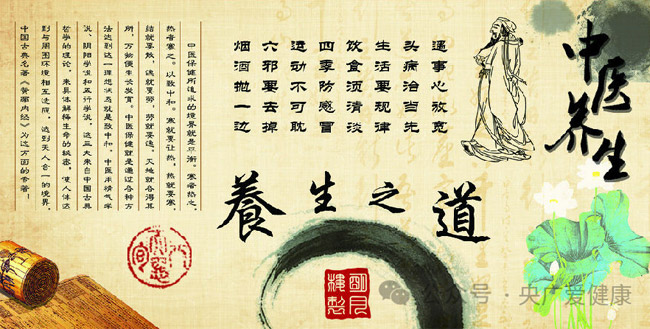 中医养生
遇事心放宽
头病治当先
生活要规律
饮食须清淡
四季防感冒
运动不可耽
六邪要去掉
烟酒抛一边
養生之道
中医保健所追求的境界就是平衡。寒者热之，
热者寒之。以致中和。寒就要让热，热就要寒，
结就要散，逸就要劳，劳就要逸。天地就各得其
所，万物便生长发育。中医保健就是通过各种方
法达到这一理想状态就是致中和。中医半精气学
说、阴阳学说和五行学说，这三大来自中国古典
哲学的理论，来具体解释生命的秘密，使人体达
到与周围环境相互达成，达到天人合一的境界。
中国古典名著《黄帝内经》为这方面的专著！
公众号 · 央广爱健康